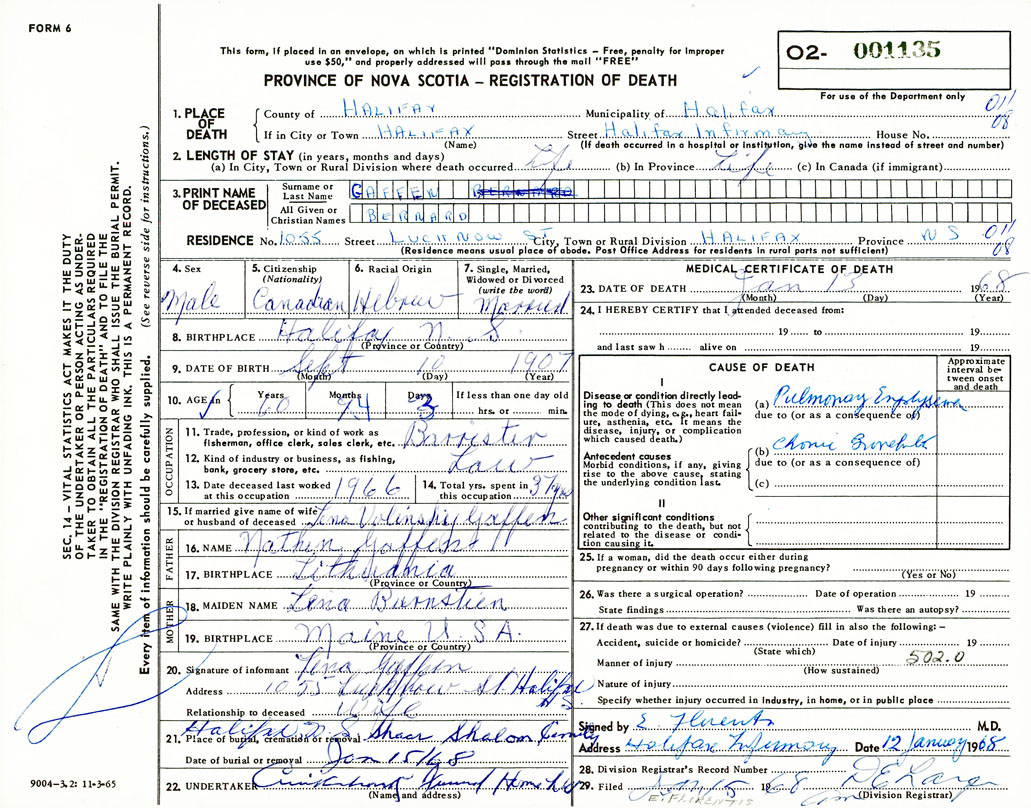 FORM 6
This form, if placed in an envelope, on which is printed "Dominion Statistics – Free, penalty for improper
use $50," and properly addressed will pass through the mail "FREE"
PROVINCE OF NOVA SCOTIA – REGISTRATION OF DEATH
O2- 001135
For use of the Department only
011
08
1. PLACE OF DEATH
County of HALIFAX Municipality of Halifax
If in City or Town HALIFAX Street Halifax Infirmary House No.
(Name) (If death occurred in a hospital or institution, give the name instead of street and number)
2. LENGTH OF STAY (in years, months and days)
(a) In City, Town or Rural Division where death occurred Life (b) In Province Life (c) In Canada (if immigrant)
3. PRINT NAME OF DECEASED
Surname or Last Name GAFFEN
All Given or Christian Names BERNARD
RESIDENCE No. 1055 Street LUCKNOW ST City, Town or Rural Division HALIFAX Province NS
(Residence means usual place of abode. Post Office Address for residents in rural parts not sufficient)
011
08
4. Sex
Male
5. Citizenship
(Nationality)
Canadian
6. Racial Origin
Hebrew
7. Single, Married,
Widowed or Divorced
(write the word)
Married
8. BIRTHPLACE Halifax N. S
(Province or Country)
9. DATE OF BIRTH Sept 10 1907
(Month) (Day) (Year)
10. AGE in Years 60 Months 4 Days 3 If less than one day old
hrs. or min.
OCCUPATION
11. Trade, profession, or kind of work as
fisherman, office clerk, sales clerk, etc. Barrister
12. Kind of industry or business, as fishing,
bank, grocery store, etc. Law
13. Date deceased last worked
at this occupation 1966
14. Total yrs. spent in
this occupation 37 yrs
15. If married give name of wife
or husband of deceased Lena Volinsky Gaffen
FATHER
16. NAME Nathen Gaffen
17. BIRTHPLACE Lithuania
(Province or Country)
MOTHER
18. MAIDEN NAME Lena Burnstien
19. BIRTHPLACE Maine U.S.A.
(Province or Country)
20. Signature of informant Lena Gaffen
Address 1055 Lucknow St Halifax
N S
Relationship to deceased Wife
21. Place of burial, cremation or removal Halifax N.S Shaar Shalom Cemty
Date of burial or removal Jan 15/68
22. UNDERTAKER Cruikshanks Funeral Home Ltd
(Name and address)
MEDICAL CERTIFICATE OF DEATH
23. DATE OF DEATH Jan 13 1968
(Month) (Day) (Year)
24. I HEREBY CERTIFY that I attended deceased from:
19 to 19
and last saw h alive on 19
CAUSE OF DEATH
Approximate
interval be-
tween onset
and death
I
Disease or condition directly lead-
ing to death (This does not mean
the mode of dying, e.g., heart fail-
ure, asthenia, etc. It means the
disease, injury, or complication
which caused death.)
(a) Pulmonary Emphysema
due to (or as a consequence of)
Antecedent causes
Morbid conditions, if any, giving
rise to the above cause, stating
the underlying condition last.
(b) Chronic Bronchitis
due to (or as a consequence of)
(c)
II
Other significant conditions
contributing to the death, but not
related to the disease or condi-
tion causing it.
25. If a woman, did the death occur either during
pregnancy or within 90 days following pregnancy?
(Yes or No)
26. Was there a surgical operation? Date of operation 19
State findings Was there an autopsy?
27. If death was due to external causes (violence) fill in also the following: –
Accident, suicide or homicide? Date of injury 19
(State which)
Manner of injury 502.0
(How sustained)
Nature of injury
Specify whether injury occurred in industry, in home, or in public place
Signed by E. M.D.
Address Halifax Infirmary Date 12 January 1968
28. Division Registrar's Record Number
29. Filed Jan 15 1968
(Division Registrar)
E. FLORENTIS
SEC. 14 – VITAL STATISTICS ACT MAKES IT THE DUTY
OF THE UNDERTAKER OR PERSON ACTING AS UNDER-
TAKER TO OBTAIN ALL THE PARTICULARS REQUIRED
IN THE "REGISTRATION OF DEATH" AND TO FILE THE
SAME WITH THE DIVISION REGISTRAR WHO SHALL ISSUE THE BURIAL PERMIT.
WRITE PLAINLY WITH UNFADING INK. THIS IS A PERMANENT RECORD.
Every item of information should be carefully supplied. (See reverse side for instructions.)
9004–3.2: 11-3-65